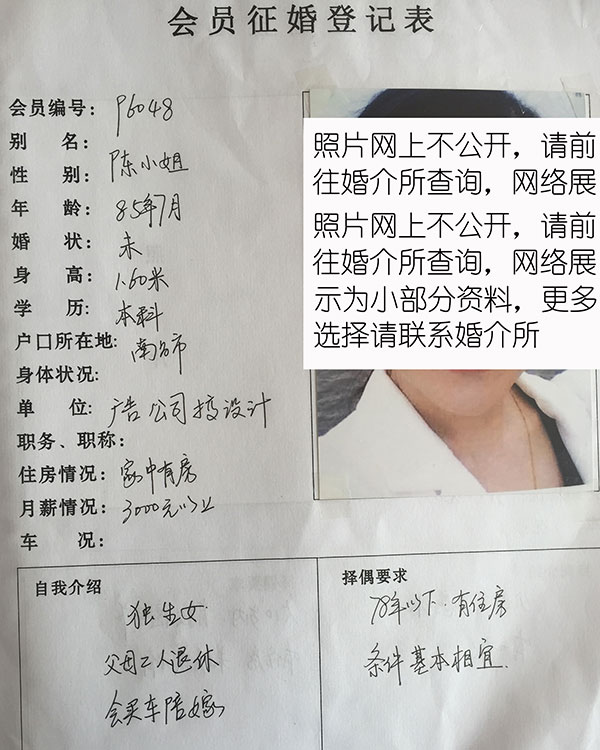 会员征婚登记表
会员编号: P6048
别 名: 陈小姐
性 别:
年 龄: 85年7月
婚 状: 未
身 高: 1.60米
学 历: 本科
户口所在地: 南昌市
身体状况:
单 位: 广告公司搞设计
职务、职称:
住房情况: 家中有房
月薪情况: 3000元以上
车 况:
照片网上不公开，请前
往婚介所查询，网络展
照片网上不公开，请前
往婚介所查询，网络展
示为小部分资料，更多
选择请联系婚介所
自我介绍
独生女
父母工人退休
会买车陪嫁
择偶要求
78年以下.有住房
条件基本相宜.